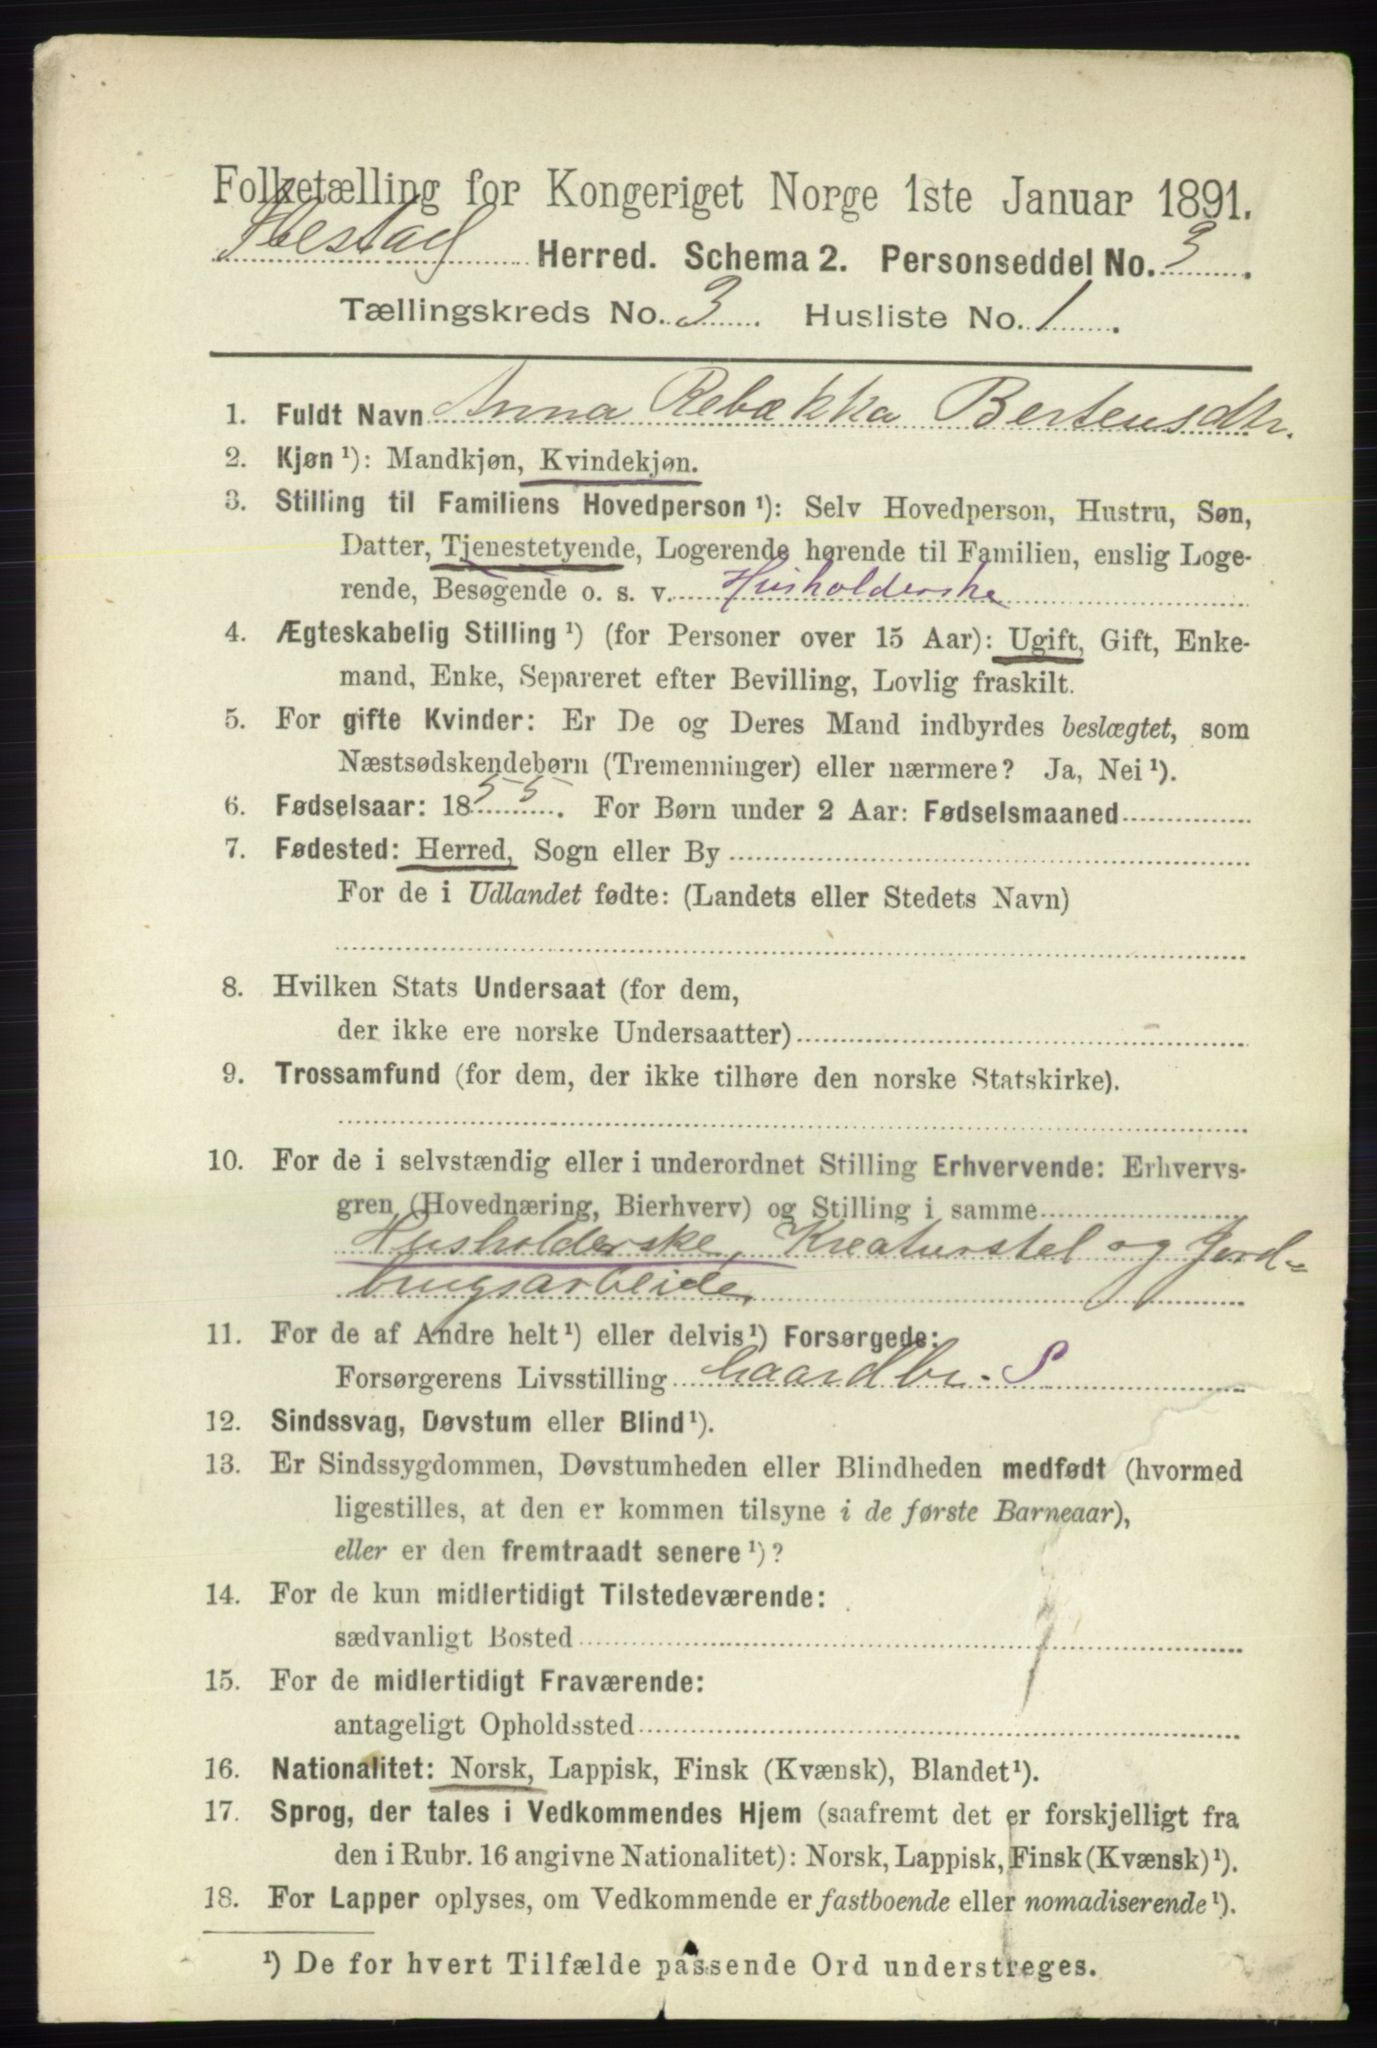 Folketælling for Kongeriget Norge 1ste Januar 1891.
Ibestad Herred. Schema 2. Personseddel No. 3.
Tællingskreds No. 3. Husliste No. 1.
1. Fuldt Navn Anna Rebækka Bertensdtr.
2. Kjøn ¹): Mandkjøn, Kvindekjøn.
3. Stilling til Familiens Hovedperson ¹): Selv Hovedperson, Hustru, Søn,
Datter, Tjenestetyende, Logerende hørende til Familien, enslig Loge-
rende, Besøgende o. s. v. Husholderske
4. Ægteskabelig Stilling ¹) (for Personer over 15 Aar): Ugift, Gift, Enke-
mand, Enke, Separeret efter Bevilling, Lovlig fraskilt.
5. For gifte Kvinder: Er De og Deres Mand indbyrdes beslægtet, som
Næstsødskendebørn (Tremenninger) eller nærmere? Ja, Nei ¹).
6. Fødselsaar: 1855. For Børn under 2 Aar: Fødselsmaaned
7. Fødested: Herred, Sogn eller By
For de i Udlandet fødte: (Landets eller Stedets Navn)
8. Hvilken Stats Undersaat (for dem,
der ikke ere norske Undersaatter)
9. Trossamfund (for dem, der ikke tilhøre den norske Statskirke).
10. For de i selvstændig eller i underordnet Stilling Erhvervende: Erhvervs-
gren (Hovednæring, Bierhverv) og Stilling i samme
Husholderske, Kreaturstel og Jord-
brugsarbeide
11. For de af Andre helt ¹) eller delvis ¹) Forsørgede:
Forsørgerens Livsstilling Gaardbr. S
12. Sindssvag, Døvstum eller Blind ¹).
13. Er Sindssygdommen, Døvstumheden eller Blindheden medfødt (hvormed
ligestilles, at den er kommen tilsyne i de første Barneaar),
eller er den fremtraadt senere ¹)?
14. For de kun midlertidigt Tilstedeværende:
sædvanligt Bosted
15. For de midlertidigt Fraværende:
antageligt Opholdssted
16. Nationalitet: Norsk, Lappisk, Finsk (Kvænsk), Blandet ¹).
17. Sprog, der tales i Vedkommendes Hjem (saafremt det er forskjelligt fra
den i Rubr. 16 angivne Nationalitet): Norsk, Lappisk, Finsk (Kvænsk) ¹).
18. For Lapper oplyses, om Vedkommende er fastboende eller nomadiserende ¹).
¹) De for hvert Tilfælde passende Ord understreges.